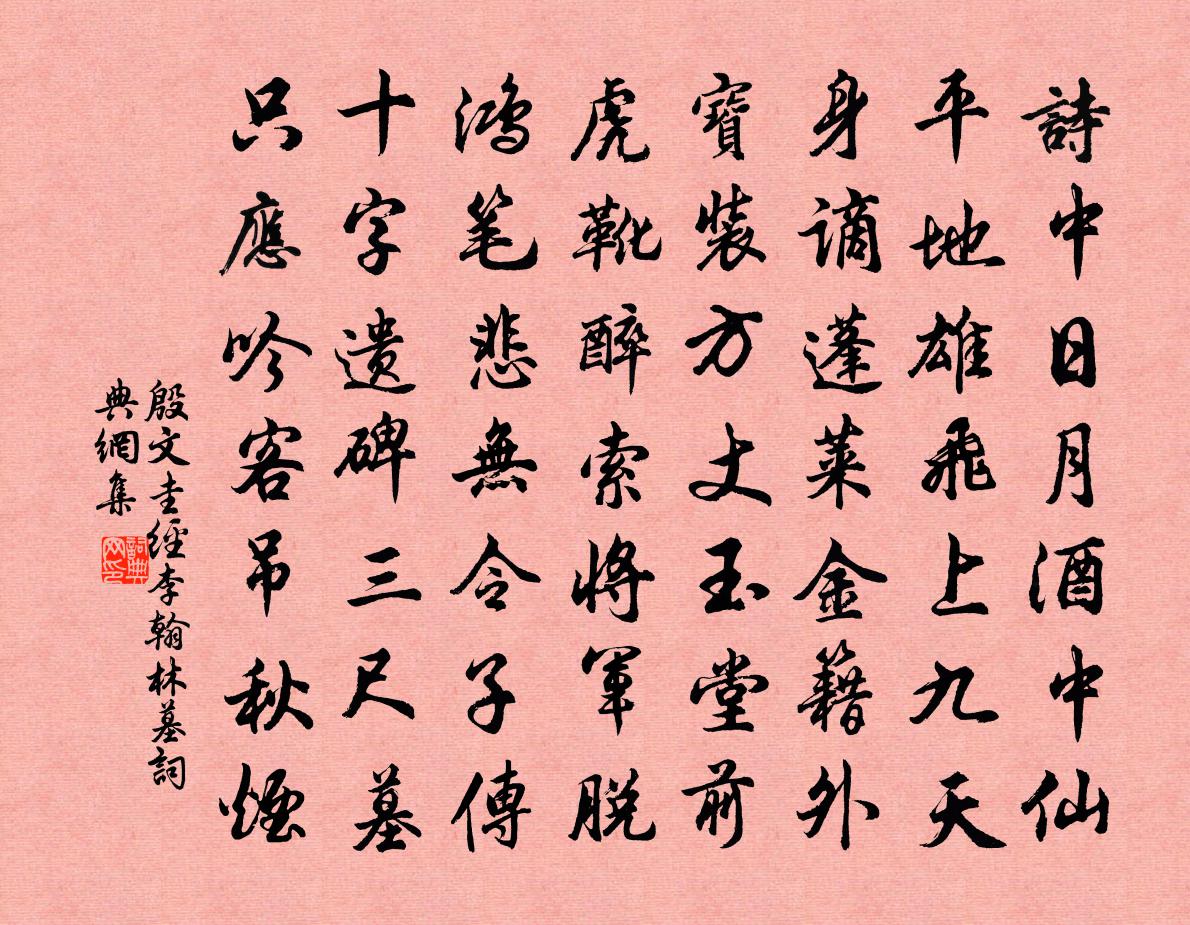 詩中日月酒中仙
平地雄飛上九天
身謫蓬萊金籍外
寶裝方丈玉堂前
虎靴醉索將軍脫
鴻笔悲無令子傳
十字遺碑三尺墓
只應吟客吊秋煙
殷文圭經李翰林墓詞
典網集
詞典網印